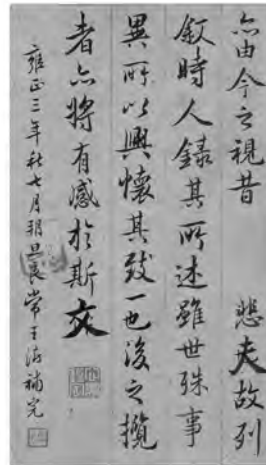 亦由今之視昔　悲夫故列
敘時人錄其所述雖世殊事
異所以興懷其致一也後之攬
者亦將有感於斯文
雍正三年秋七月朔旦良常王澍補完